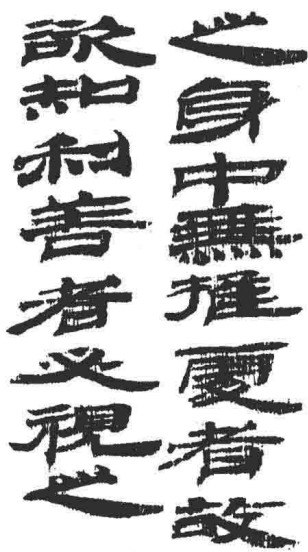 之身中無推夏者故
欲知利善者必視之